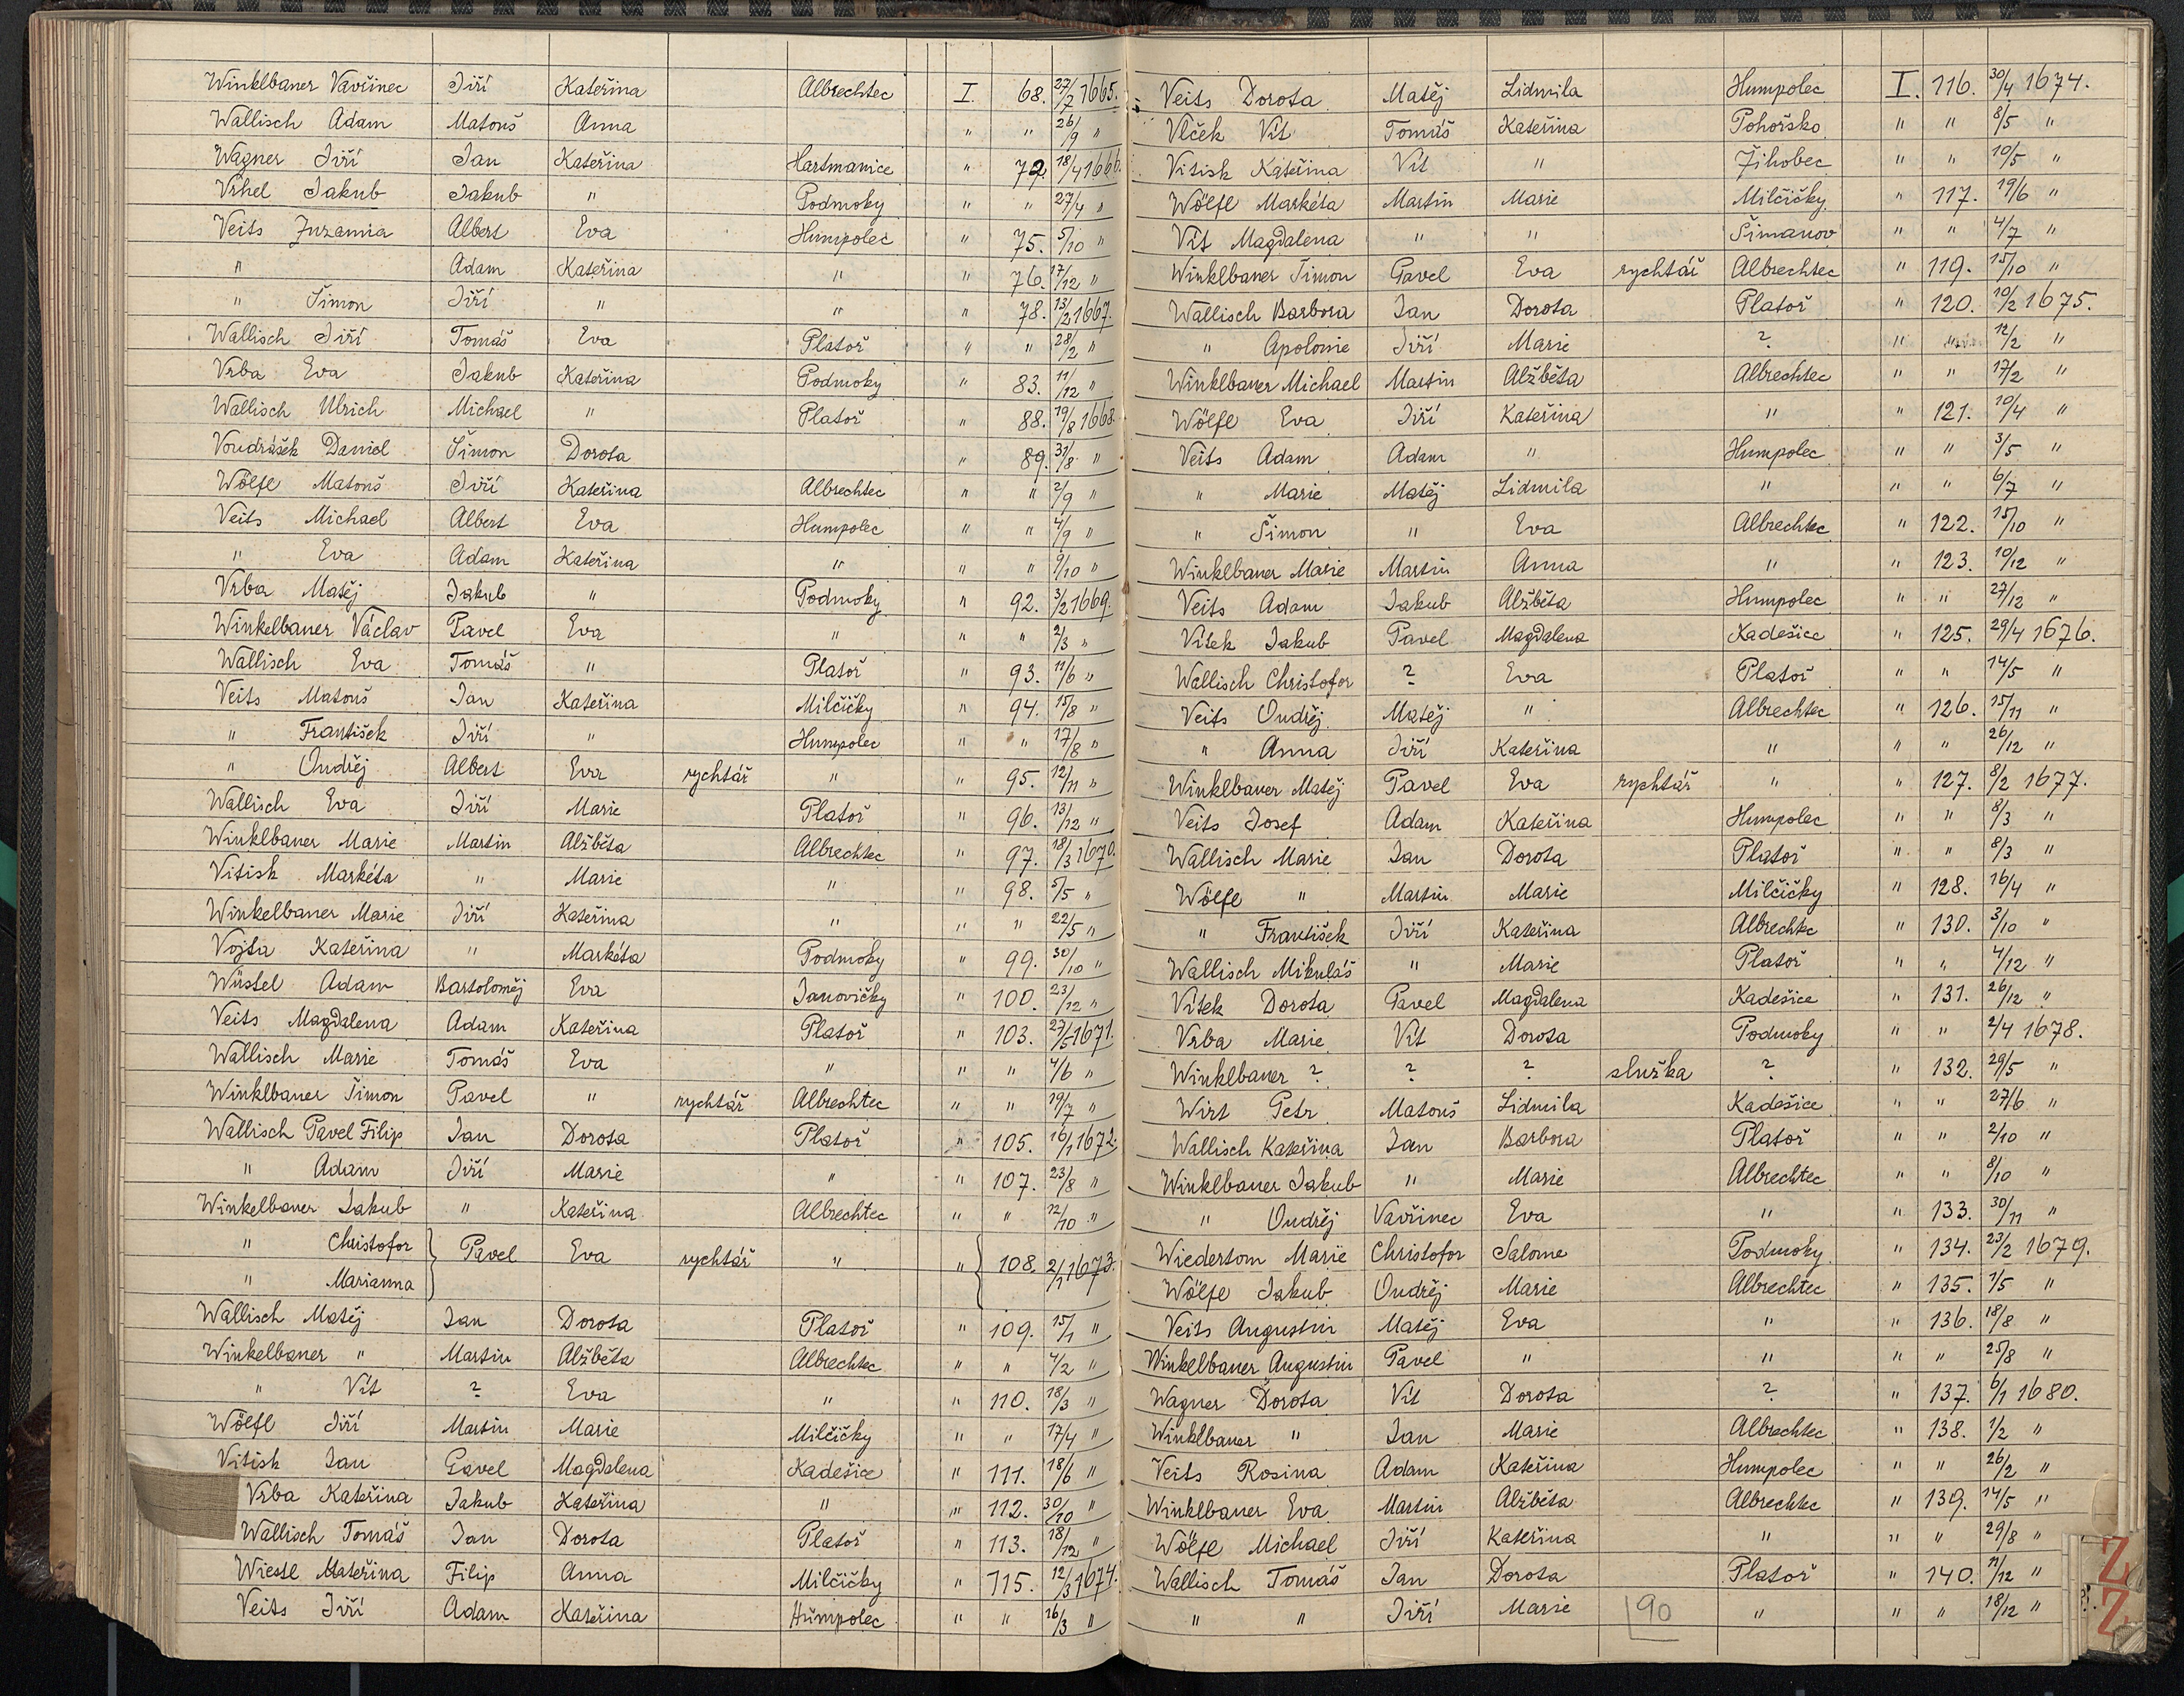 Winklbauer Vavřinec Jiří Kateřina Albrechtec I. 68. 27/7 1665.
Wallisch Adam Matouš Anna " " 26/9 "
Wagner Jiří Jan Kateřina Hartmanice " 72. 18/4 1666.
Vrhel Jakub Jakub " Podmoky " " 27/4 "
Veits Zuzanna Albert Eva Humpolec " 75. 5/10 "
" Adam Kateřina " " 76. 17/12 "
" Šimon Jiří " " " 78. 13/2 1667.
Wallisch Jiří Tomáš Eva Platoř " " 28/2 "
Vrba Eva Jakub Kateřina Podmoky " 83. 11/12 "
Wallisch Ulrich Michael " Platoř " 88. 19/8 1668.
Voudrášek Daniel Šimon Dorota " 89. 31/8 "
Wölfl Matouš Jiří Kateřina Albrechtec " " 2/9 "
Veits Michael Albert Eva Humpolec " " 4/9 "
" Eva Adam Kateřina " " " 9/10 "
Vrba Matěj Jakub " Podmoky " 92. 3/2 1669.
Winkelbauer Václav Pavel Eva " " " 2/3 "
Wallisch Eva Tomáš " Platoř " 93. 11/6 "
Veits Matouš Jan Kateřina Milčičky " 94. 15/8 "
" František Jiří " Humpolec " " 17/8 "
" Ondřej Albert Eva rychtář " " 95. 12/11 "
Wallisch Eva Jiří Marie Platoř " 96. 13/12 "
Winklbauer Marie Martin Alžběta Albrechtec " 97. 18/3 1670.
Vitisk Markéta " Marie " " 98. 5/5 "
Winkelbauer Marie Jiří Kateřina " " " 22/5 "
Vojta Kateřina " Markéta Podmoky " 99. 30/10 "
Wüstel Adam Bartoloměj Eva Janovičky " 100. 23/12 "
Veits Magdalena Adam Kateřina Platoř " 103. 27/5 1671.
Wallisch Marie Tomáš Eva " " " 4/6 "
Winklbauer Šimon Pavel " rychtář Albrechtec " " 19/7 "
Wallisch Pavel Filip Jan Dorota Platoř " 105. 16/1 1672.
" Adam Jiří Marie " " 107. 23/8 "
Winkelbauer Jakub " Kateřina Albrechtec " " 12/10 "
" Christofor } Pavel Eva rychtář " " { 108. 2/1 1673.
" Marianna
Wallisch Matěj Jan Dorota Platoř " 109. 15/1 "
Winkelbauer " Martin Alžběta Albrechtec " " 4/2 "
" Vít ? Eva " " 110. 18/3 "
Wölfl Jiří Martin Marie Milčičky " " 17/4 "
Vitisk Jan Pavel Magdalena Kadešice " 111. 18/6 "
Vrba Kateřina Jakub Kateřina " " 112. 30/10 "
Wallisch Tomáš Jan Dorota Platoř " 113. 18/12 "
Wiestl Kateřina Filip Anna Milčičky " 115. 12/3 1674.
Veits Jiří Adam Kateřina Humpolec " " 26/3 "
Veits Dorota Matěj Lidmila Humpolec I. 116. 30/4 1674.
Vlček Vít Tomáš Kateřina Pohořsko " " 8/5 "
Vitisk Kateřina Vít " Žihobec " " 10/5 "
Wölfl Markéta Martin Marie Milčičky " 117. 19/6 "
Vít Magdalena " " Šimanov " " 4/7 "
Winklbauer Šimon Pavel Eva rychtář Albrechtec " 119. 15/10 "
Wallisch Barbora Jan Dorota Platoř " 120. 10/2 1675.
" Apolonie Jiří Marie ? " " 12/2 "
Winklbauer Michael Martin Alžběta Albrechtec " " 17/2 "
Wölfl Eva Jiří Kateřina " " 121. 10/4 "
Veits Adam Adam " Humpolec " " 3/5 "
" Marie Matěj Lidmila " " " 6/7 "
" Šimon " Eva Albrechtec " 122. 15/10 "
Winklbauer Marie Martin Anna " " 123. 10/12 "
Veits Adam Jakub Alžběta Humpolec " " 27/12 "
Vítek Jakub Pavel Magdalena Kadešice " 125. 29/4 1676.
Wallisch Christofor ? Eva Platoř " " 14/5 "
Veits Ondřej Matěj " Albrechtec " 126. 15/11 "
" Anna Jiří Kateřina " " " 26/12 "
Winklbauer Matěj Pavel Eva rychtář " " 127. 8/2 1677.
Veits Josef Adam Kateřina Humpolec " " 8/3 "
Wallisch Marie Jan Dorota Platoř " " 8/3 "
Wölfl " Martin Marie Milčičky " 128. 16/4 "
" František Jiří Kateřina Albrechtec " 130. 3/10 "
Wallisch Mikuláš " Marie Platoř " " 4/12 "
Vítek Dorota Pavel Magdalena Kadešice " 131. 26/12 "
Vrba Marie Vít Dorota Podmoky " " 2/4 1678.
Winklbauer ? ? ? služka ? " 132. 29/5 "
Wirt Petr Matouš Lidmila Kadešice " " 27/6 "
Wallisch Kateřina Jan Barbora Platoř " " 2/10 "
Winklbauer Jakub " Marie Albrechtec " " 8/10 "
" Ondřej Vavřinec Eva " " 133. 30/11 "
Wiedertom Marie Christofor Salome Podmoky " 134. 23/2 1679.
Wölfl Jakub Ondřej Marie Albrechtec " 135. 1/5 "
Veits Augustin Matěj Eva " " 136. 18/8 "
Winkelbauer Augustin Pavel " " " " 25/8 "
Wagner Dorota Vít Dorota ? " 137. 6/1 1680.
Winklbauer " Jan Marie Albrechtec " 138. 1/2 "
Veits Rosina Adam Kateřina Humpolec " " 26/2 "
Winklbauer Eva Martin Alžběta Albrechtec " 139. 14/5 "
Wölfl Michael Jiří Kateřina " " " 29/8 "
Wallisch Tomáš Jan Dorota Platoř " 140. 11/12 "
" " Jiří Marie 90 " " " 18/12 "
Z
Z